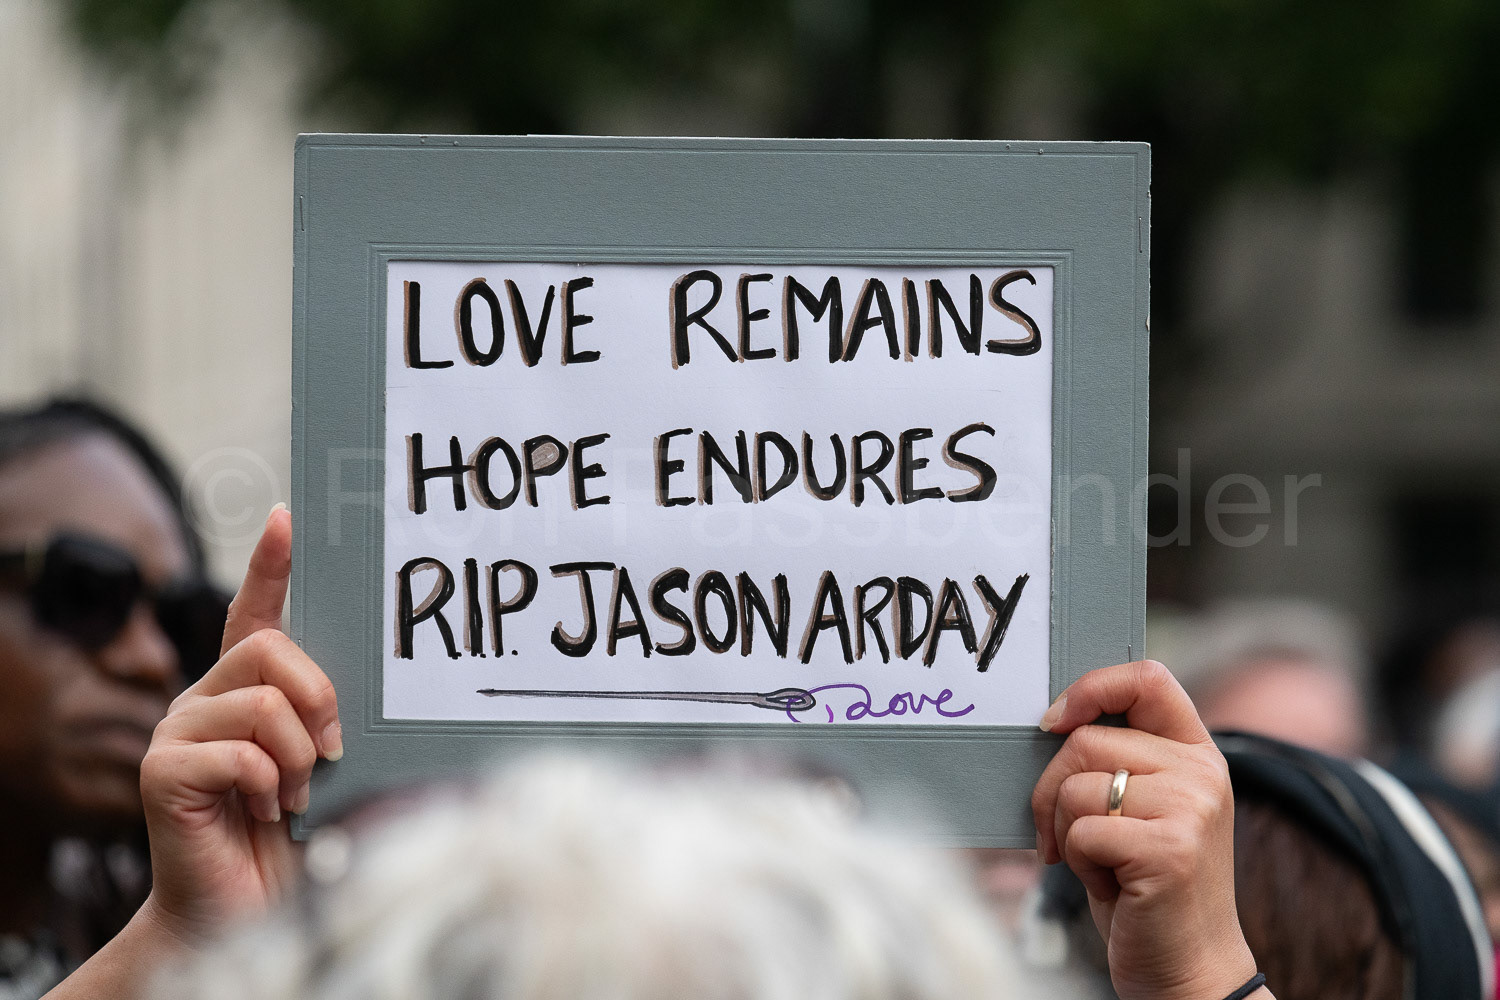 LOVE REMAINS
HOPE ENDURES
R.I.P. JASON ARDAY
Love
© Ron Fassbender